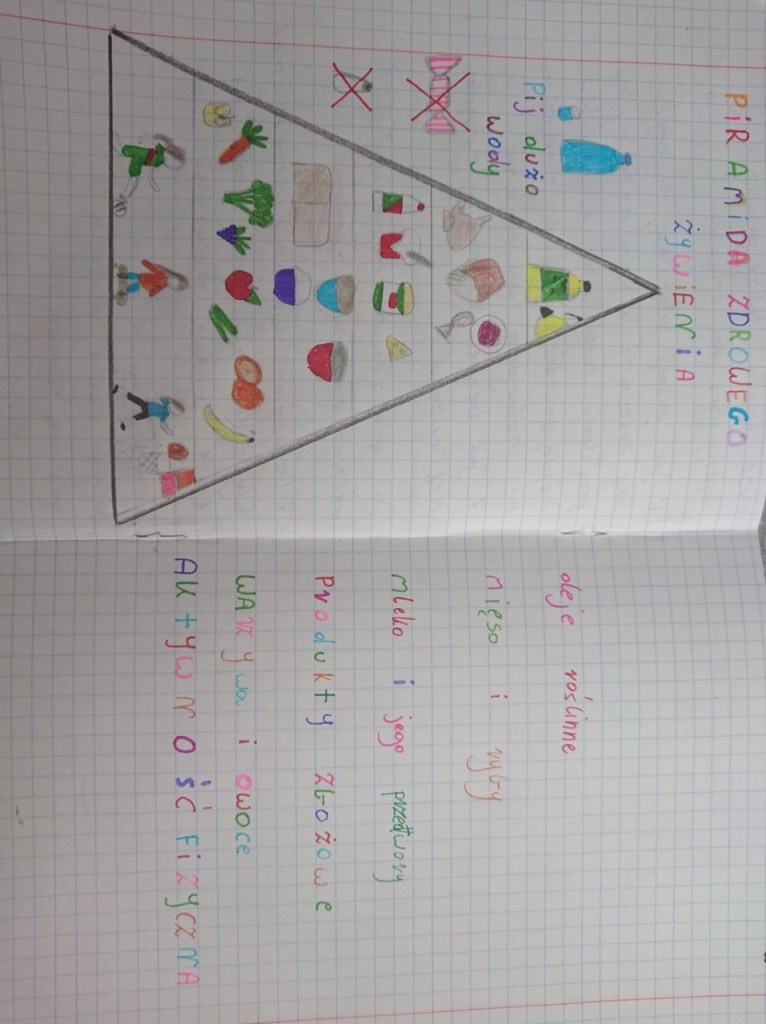 PiRAMiDA ZDROWEGO
żywiENiA
Pij dużo
wody
oleje roślinne
mięso i ryby
mleko i jego przetwory
Produkty zbożowe
WARzywa i owoce
AKtywNOŚĆ FiZyCZNA